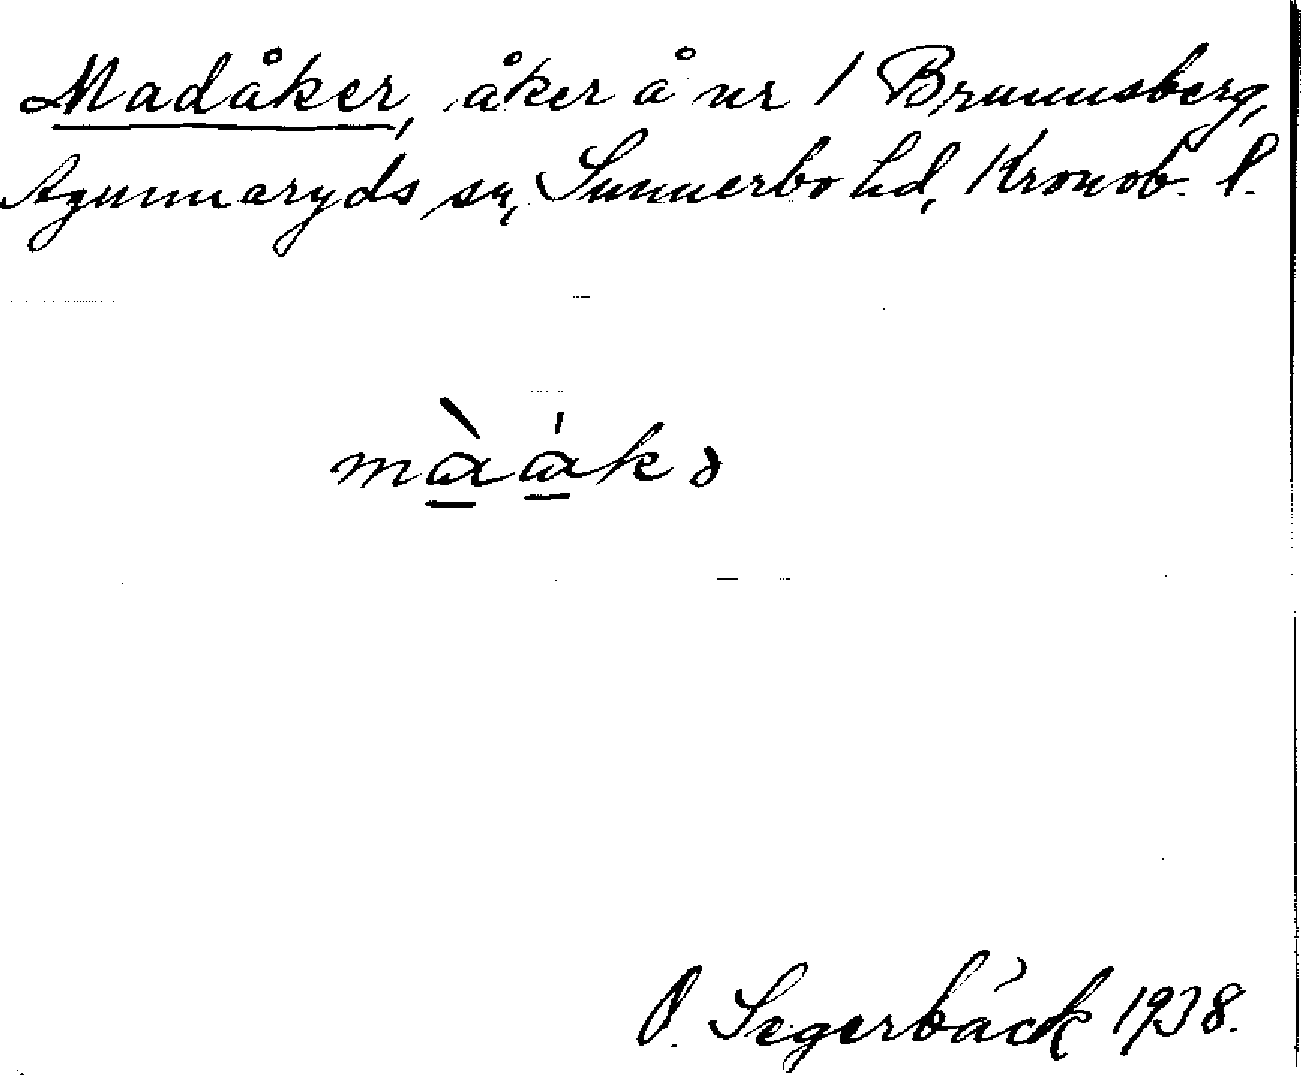 Madåker, åker å nr 1 Brunnsberg,
Agunnaryds sn, Sunnerbo hd, Kronob. l.
màákə
P. Segerbäck 1938.